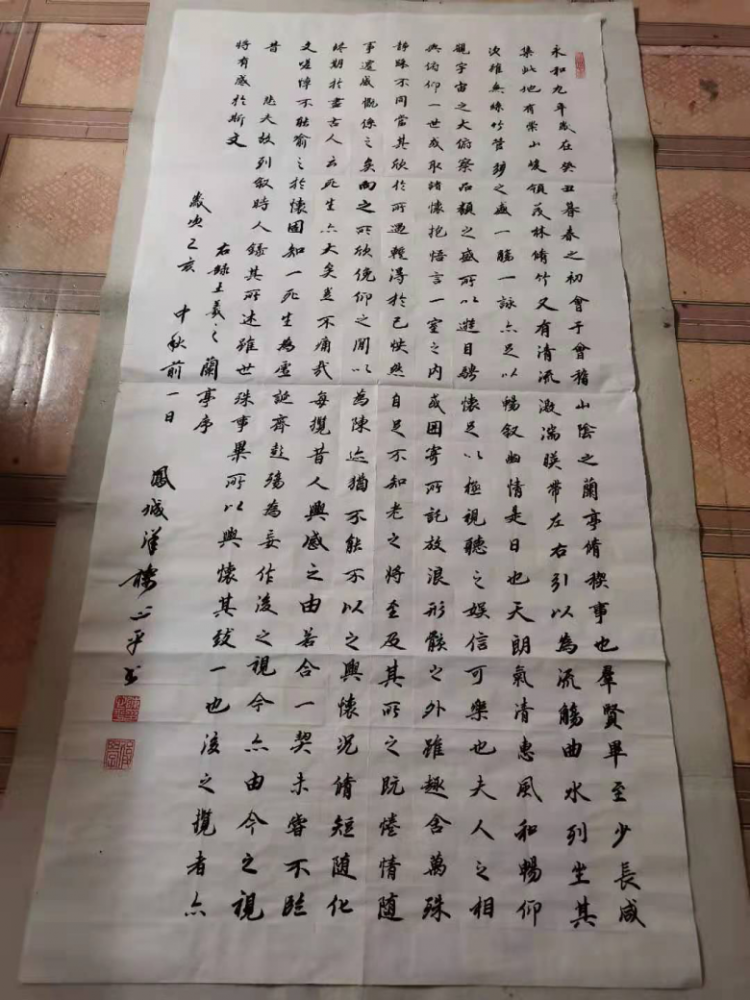 永和九年歲在癸丑暮春之初會于會稽山陰之蘭亭脩稧事也羣賢畢至少長咸
集此地有崇山峻領茂林脩竹又有清流激湍暎帶左右引以為流觴曲水列坐其
次雖無絲竹管弦之盛一觴一詠亦足以暢叙幽情是日也天朗氣清惠風和暢仰
觀宇宙之大俯察品類之盛所以遊目騁懷足以極視聽之娛信可樂也夫人之相
與俯仰一世或取諸懷抱悟言一室之內或因寄所託放浪形骸之外雖趣舍萬殊
靜躁不同當其欣於所遇輒得於己怏然自足不知老之將至及其所之既惓情隨
事遷感慨係之矣向之所欣俛仰之閒以為陳迹猶不能不以之興懷況脩短隨化
終期於盡古人云死生亦大矣豈不痛哉每攬昔人興感之由若合一契未甞不臨
文嗟悼不能喻之於懷固知一死生為虛誕齊彭殤為妄作後之視今亦由今之視
昔 悲夫故列叙時人錄其所述雖世殊事異所以興懷其致一也後之攬者亦
將有感於斯文
右録王羲之蘭亭序
歲次己亥 中秋前一日
鳳城 平書